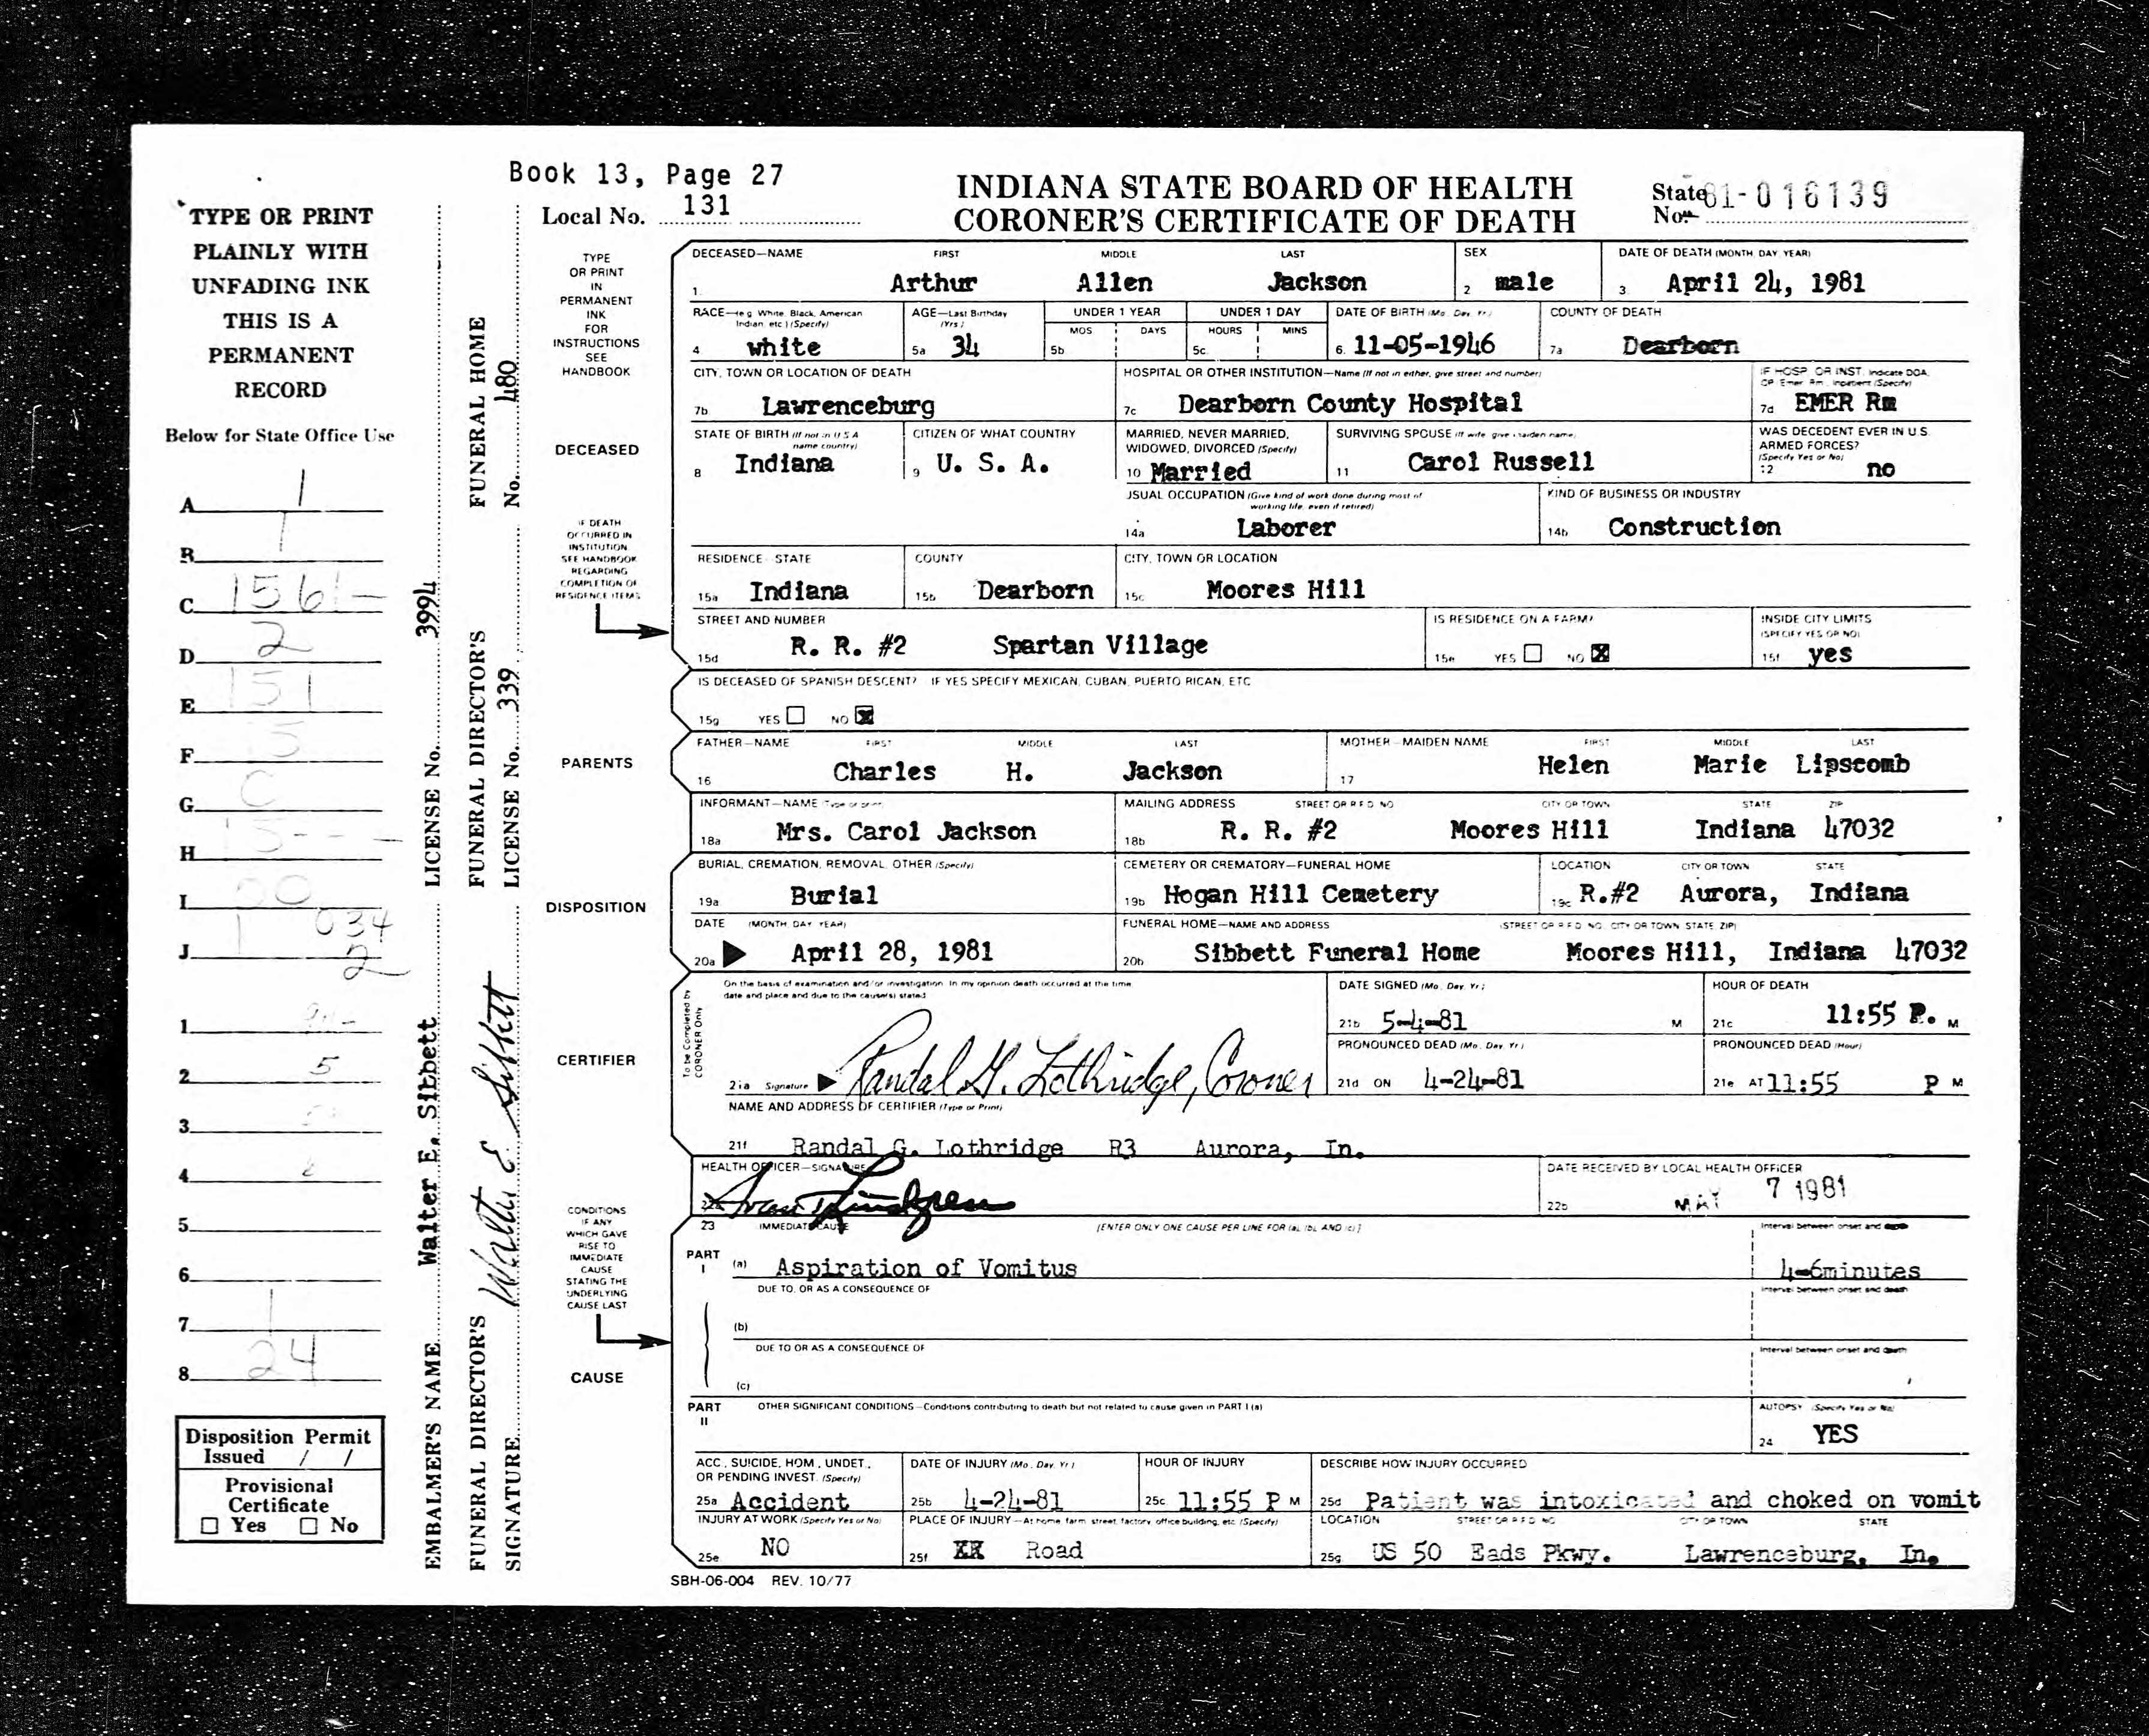 Book 13, Page 27
Local No. 131
INDIANA STATE BOARD OF HEALTH
CORONER'S CERTIFICATE OF DEATH
State No. 81-016139
TYPE OR PRINT
PLAINLY WITH
UNFADING INK
THIS IS A
PERMANENT
RECORD
Below for State Office Use
A 1
B 1
C 1561-
D 2
E 151
F 5
G C
H 15---
I 00
J 1 034
2
1
2 5
3
4
5
6
7 1
8 24
Disposition Permit
Issued / /
Provisional
Certificate
☐ Yes ☐ No
EMBALMER'S NAME Walter E. Sibbett LICENSE No. 3994
FUNERAL DIRECTOR'S SIGNATURE Walter E Sibbett
FUNERAL DIRECTOR'S LICENSE No. 339
FUNERAL HOME No. 480
TYPE
OR PRINT
IN
PERMANENT
INK
FOR
INSTRUCTIONS
SEE
HANDBOOK
DECEASED
IF DEATH
OCCURRED IN
INSTITUTION
SEE HANDBOOK
REGARDING
COMPLETION OF
RESIDENCE ITEMS
PARENTS
DISPOSITION
CERTIFIER
CONDITIONS
IF ANY
WHICH GAVE
RISE TO
IMMEDIATE
CAUSE
STATING THE
UNDERLYING
CAUSE LAST
CAUSE
DECEASED—NAME FIRST MIDDLE LAST SEX DATE OF DEATH (MONTH DAY YEAR)
1. Arthur Allen Jackson 2 male 3 April 24, 1981
RACE—(e g White, Black, American Indian, etc.) (Specify) AGE—Last Birthday (Yrs.) UNDER 1 YEAR UNDER 1 DAY DATE OF BIRTH (Mo. Day, Yr.) COUNTY OF DEATH
MOS DAYS HOURS MINS
4 white 5a 34 5b 5c. 6. 11-05-1946 7a Dearborn
CITY, TOWN OR LOCATION OF DEATH HOSPITAL OR OTHER INSTITUTION—Name (If not in either, give street and number) IF HOSP OR INST. Indicate DOA, OP Emer Rm., Inpatient (Specify)
7b Lawrenceburg 7c Dearborn County Hospital 7d EMER Rm
STATE OF BIRTH (If not in U S A name country) CITIZEN OF WHAT COUNTRY MARRIED, NEVER MARRIED, WIDOWED, DIVORCED (Specify) SURVIVING SPOUSE (If wife, give maiden name) WAS DECEDENT EVER IN U.S. ARMED FORCES? (Specify Yes or No)
8 Indiana 9 U. S. A. 10 Married 11 Carol Russell 12 no
USUAL OCCUPATION (Give kind of work done during most of working life, even if retired) KIND OF BUSINESS OR INDUSTRY
14a Laborer 14b Construction
RESIDENCE - STATE COUNTY CITY, TOWN OR LOCATION
15a Indiana 15b Dearborn 15c Moores Hill
STREET AND NUMBER IS RESIDENCE ON A FARM? INSIDE CITY LIMITS (SPECIFY YES OR NO)
15d R. R. #2 Spartan Village 15e YES ☐ NO ☒ 15f yes
IS DECEASED OF SPANISH DESCENT? IF YES SPECIFY MEXICAN, CUBAN, PUERTO RICAN, ETC
15g YES ☐ NO ☒
FATHER—NAME FIRST MIDDLE LAST MOTHER—MAIDEN NAME FIRST MIDDLE LAST
16 Charles H. Jackson 17 Helen Marie Lipscomb
INFORMANT—NAME (Type or print) MAILING ADDRESS STREET OR R F D NO CITY OR TOWN STATE ZIP
18a Mrs. Carol Jackson 18b R. R. #2 Moores Hill Indiana 47032
BURIAL, CREMATION, REMOVAL, OTHER (Specify) CEMETERY OR CREMATORY—FUNERAL HOME LOCATION CITY OR TOWN STATE
19a Burial 19b Hogan Hill Cemetery 19c R.#2 Aurora, Indiana
DATE (MONTH DAY YEAR) FUNERAL HOME—NAME AND ADDRESS (STREET OR R F D NO. CITY OR TOWN STATE ZIP)
20a April 28, 1981 20b Sibbett Funeral Home Moores Hill, Indiana 47032
To be Completed by CORONER Only
On the basis of examination and/or investigation in my opinion death occurred at the time, date and place and due to the cause(s) stated
21a Signature Randal G. Lothridge, Coroner
DATE SIGNED (Mo. Day, Yr.) HOUR OF DEATH
21b 5-4-81 M 21c 11:55 P. M
PRONOUNCED DEAD (Mo. Day, Yr.) PRONOUNCED DEAD (Hour)
21d ON 4-24-81 21e AT 11:55 P M
NAME AND ADDRESS OF CERTIFIER (Type or Print)
21f Randal G. Lothridge R3 Aurora, In.
HEALTH OFFICER—SIGNATURE DATE RECEIVED BY LOCAL HEALTH OFFICER
22b MAY 7 1981
23 IMMEDIATE CAUSE [ENTER ONLY ONE CAUSE PER LINE FOR (a), (b), AND (c)] Interval between onset and death
PART I (a) Aspiration of Vomitus 4-6minutes
DUE TO, OR AS A CONSEQUENCE OF Interval between onset and death
(b)
DUE TO OR AS A CONSEQUENCE OF Interval between onset and death
(c)
PART II OTHER SIGNIFICANT CONDITIONS—Conditions contributing to death but not related to cause given in PART I (a) AUTOPSY (Specify Yes or No)
24 YES
ACC., SUICIDE, HOM., UNDET., OR PENDING INVEST. (Specify) DATE OF INJURY (Mo. Day, Yr.) HOUR OF INJURY DESCRIBE HOW INJURY OCCURRED
25a Accident 25b 4-24-81 25c 11:55 P M 25d Patient was intoxicated and choked on vomit
INJURY AT WORK (Specify Yes or No) PLACE OF INJURY—At home, farm, street, factory, office building, etc (Specify) LOCATION STREET OR R F D NO CITY OR TOWN STATE
25e NO 25f XX Road 25g US 50 Eads Pkwy. Lawrenceburg, In.
SBH-06-004 REV. 10/77